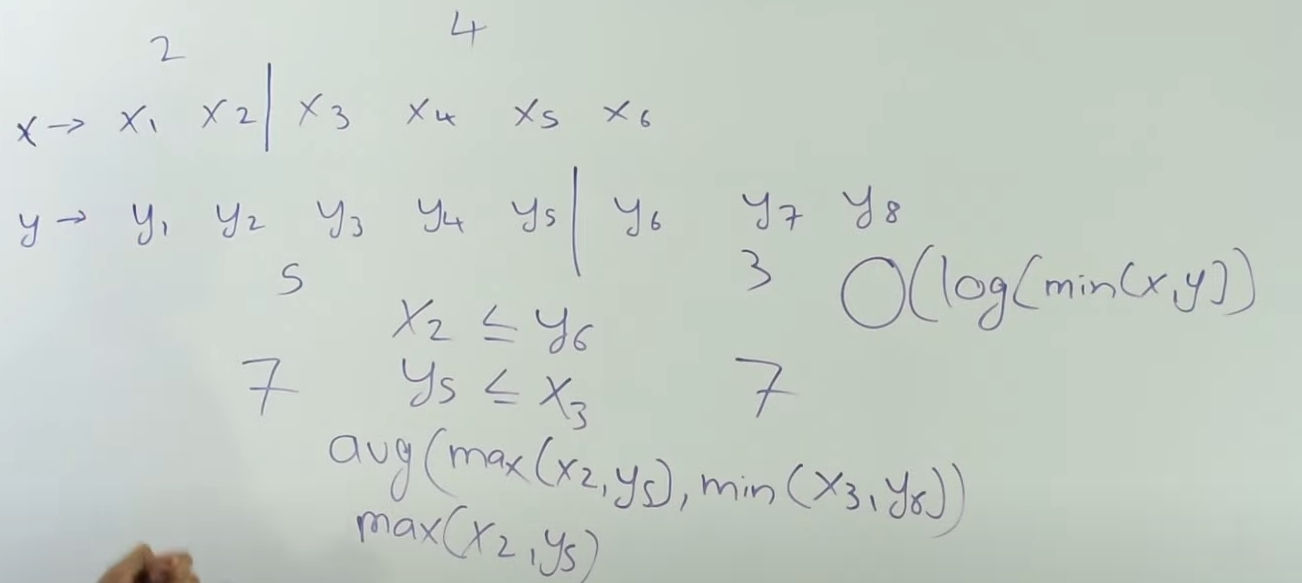 2 4
x → x1 x2 | x3 x4 x5 x6
y → y1 y2 y3 y4 y5 | y6 y7 y8
5 3 O(log(min(x,y)))
x2 ≤ y6
7 y5 ≤ x3 7
avg(max(x2,y5), min(x3,y6))
max(x2,y5)